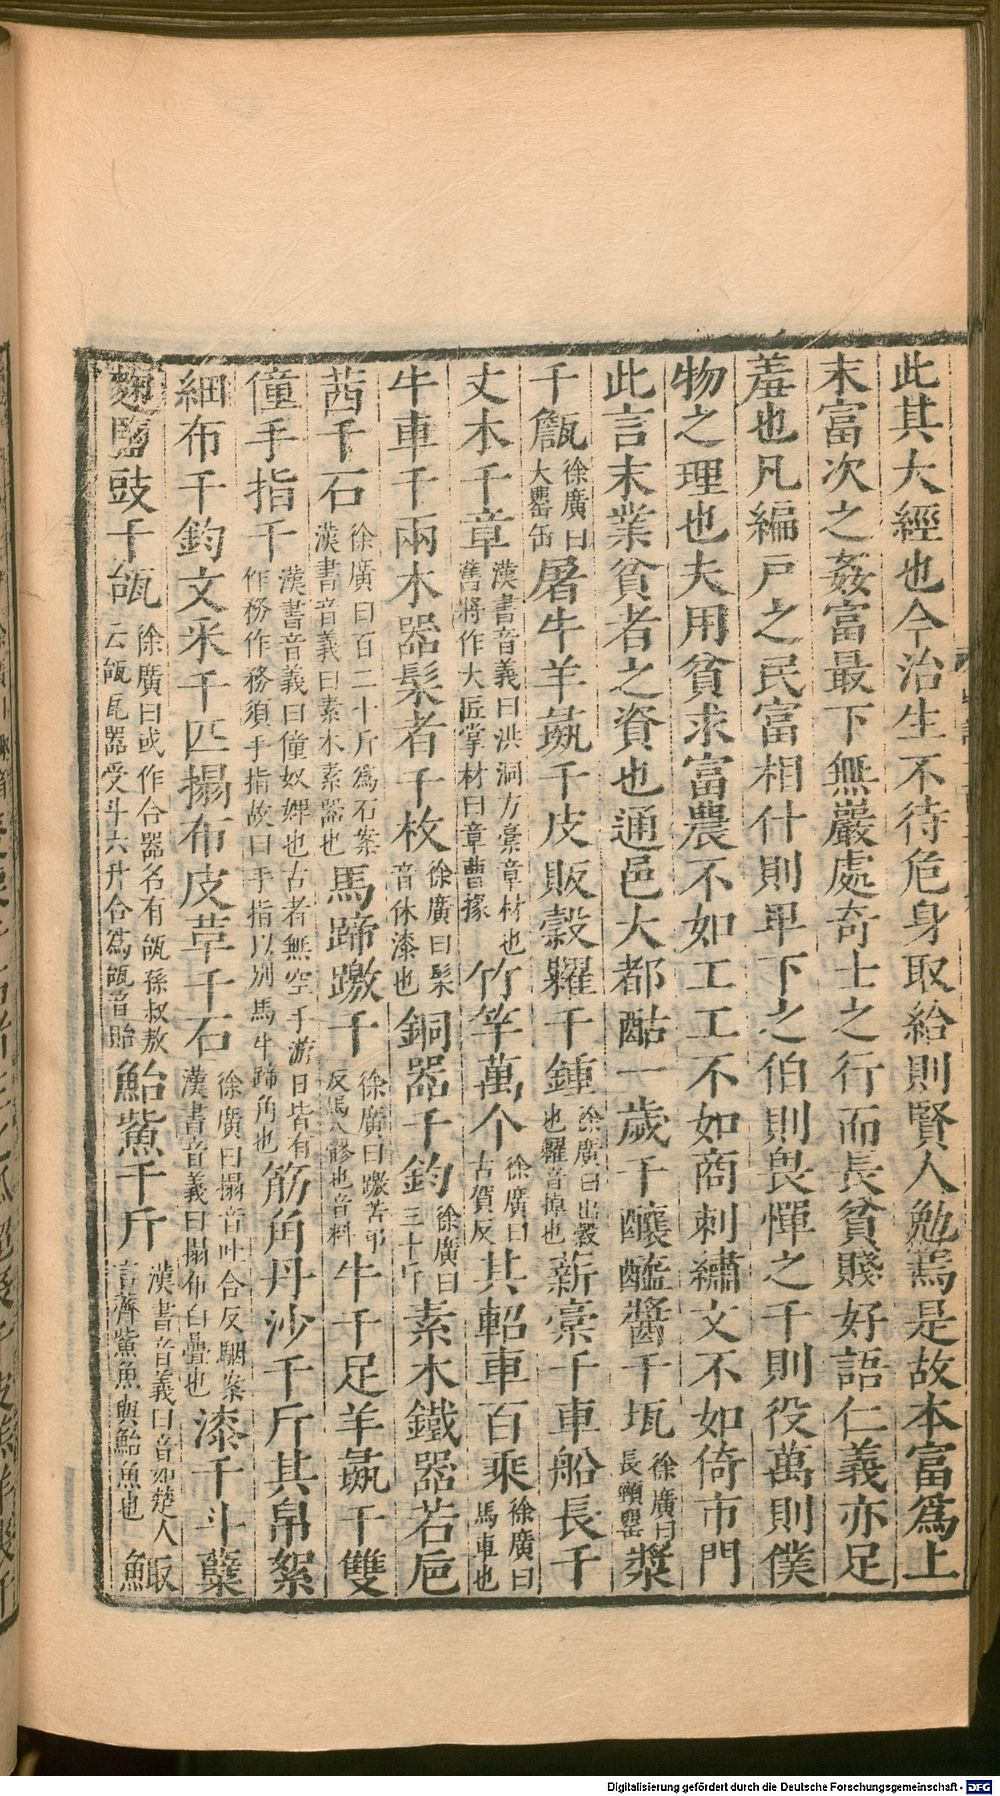 此其大經也今治生不待危身取給則賢人勉焉是故本富爲上
末富次之姦富最下無巖處奇士之行而長貧賤好語仁義亦足
羞也凡編戸之民富相什則卑下之伯則畏憚之千則役萬則僕
物之理也夫用貧求富農不如工工不如商刺繡文不如倚市門
此言末業貧者之資也通邑大都酤一歲千釀醯醬千瓨徐廣曰長頸罌漿
千甔徐廣曰大罌缶屠牛羊彘千皮販穀糶千鍾徐廣曰出穀也糶音掉也薪槀千車船長千
丈木千章漢書音義曰洪洞方槀章材也舊將作大匠掌材曰章曹掾竹竿萬个徐廣曰古賀反其軺車百乘徐廣曰馬車也
牛車千兩木器髤者千枚徐廣曰髤音休漆也銅器千鈞徐廣曰三十斤素木鐵器若巵
茜千石徐廣曰百二十斤爲石案漢書音義曰素木素器也馬蹄躈千徐廣曰躈苦弔反馬八髎也音料牛千足羊彘千雙
僮手指千漢書音義曰僮奴婢也古者無空手游日皆有作務作務須手指故曰手指以別馬牛蹄角也筋角丹沙千斤其帛絮
細布千鈞文采千匹搨布皮革千石徐廣曰搨音吐合反駰案漢書音義曰搨布白疊也漆千斗糵
麴鹽豉千瓵徐廣曰或作台器名有瓵孫叔敖云瓵瓦器受斗六升合爲瓵音貽鮐鮆千斤漢書音義曰音如楚人言薺鮆魚與鮐魚也鯫
Digitalisierung gefördert durch die Deutsche Forschungsgemeinschaft - DFG